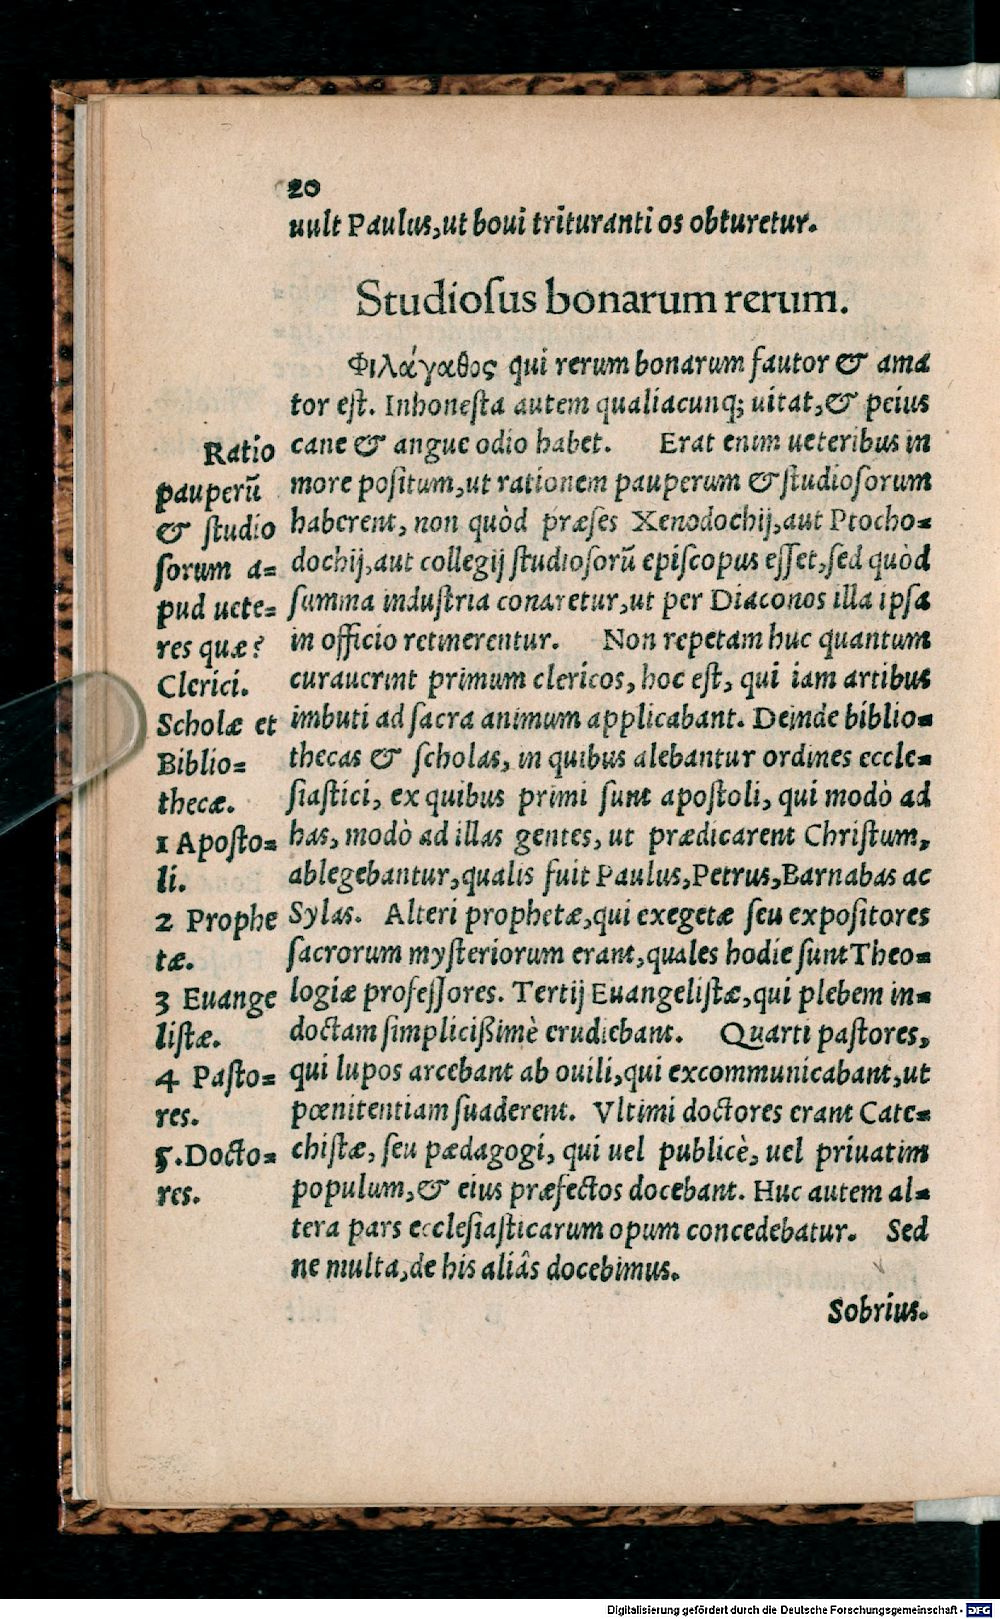 20
uult Paulus,ut boui trituranti os obturetur.
Studioſus bonarum rerum.
Φιλάγαθος qui rerum bonarum fautor & ama
tor eſt. Inhoneſta autem qualiacunq; uitat,& peius
cane & angue odio habet. Erat enim ueteribus in
more poſitum,ut rationem pauperum & ſtudioſorum
haberent, non quòd præſes Xenodochij,aut Ptocho=
dochij,aut collegij ſtudioſorũ epiſcopus eſſet,ſed quòd
ſumma induſtria conaretur,ut per Diaconos illa ipſa
in officio retinerentur. Non repetam huc quantum
curauerint primum clericos, hoc eſt, qui iam artibus
imbuti ad ſacra animum applicabant. Deinde biblio=
thecas & ſcholas, in quibus alebantur ordines eccle=
ſiaſtici, ex quibus primi ſunt apoſtoli, qui modò ad
has, modò ad illas gentes, ut prædicarent Chriſtum,
ablegebantur,qualis fuit Paulus,Petrus,Barnabas ac
Sylas. Alteri prophetæ,qui exegetæ ſeu expoſitores
ſacrorum myſteriorum erant,quales hodie ſunt Theo=
logiæ profeſſores. Tertij Euangeliſtæ,qui plebem in=
doctam ſimpliciſſimè erudiebant. Quarti paſtores,
qui lupos arcebant ab ouili,qui excommunicabant,ut
pœnitentiam ſuaderent. Vltimi doctores erant Cate=
chiſtæ, ſeu pædagogi, qui uel publicè, uel priuatim
populum,& eius præfectos docebant. Huc autem al=
tera pars eccleſiaſticarum opum concedebatur. Sed
ne multa,de his aliâs docebimus.
Sobrius.
Ratio
pauperũ
& ſtudio
ſorum a=
pud uete=
res quæ?
Clerici.
Scholæ et
Biblio=
thecæ.
1 Apoſto=
li.
2 Prophe
tæ.
3 Euange
liſtæ.
4 Paſto=
res.
5.Docto=
res.
Digitalisierung gefördert durch die Deutsche Forschungsgemeinschaft - DFG